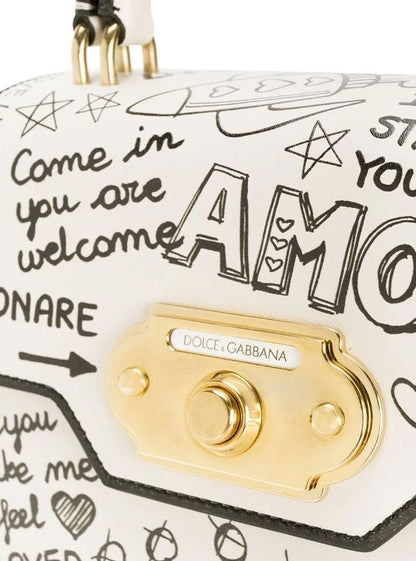 Come in
you are
welcome
AMO
ST
YOU
ONARE
DOLCE & GABBANA
you
ke me
feel
OVED